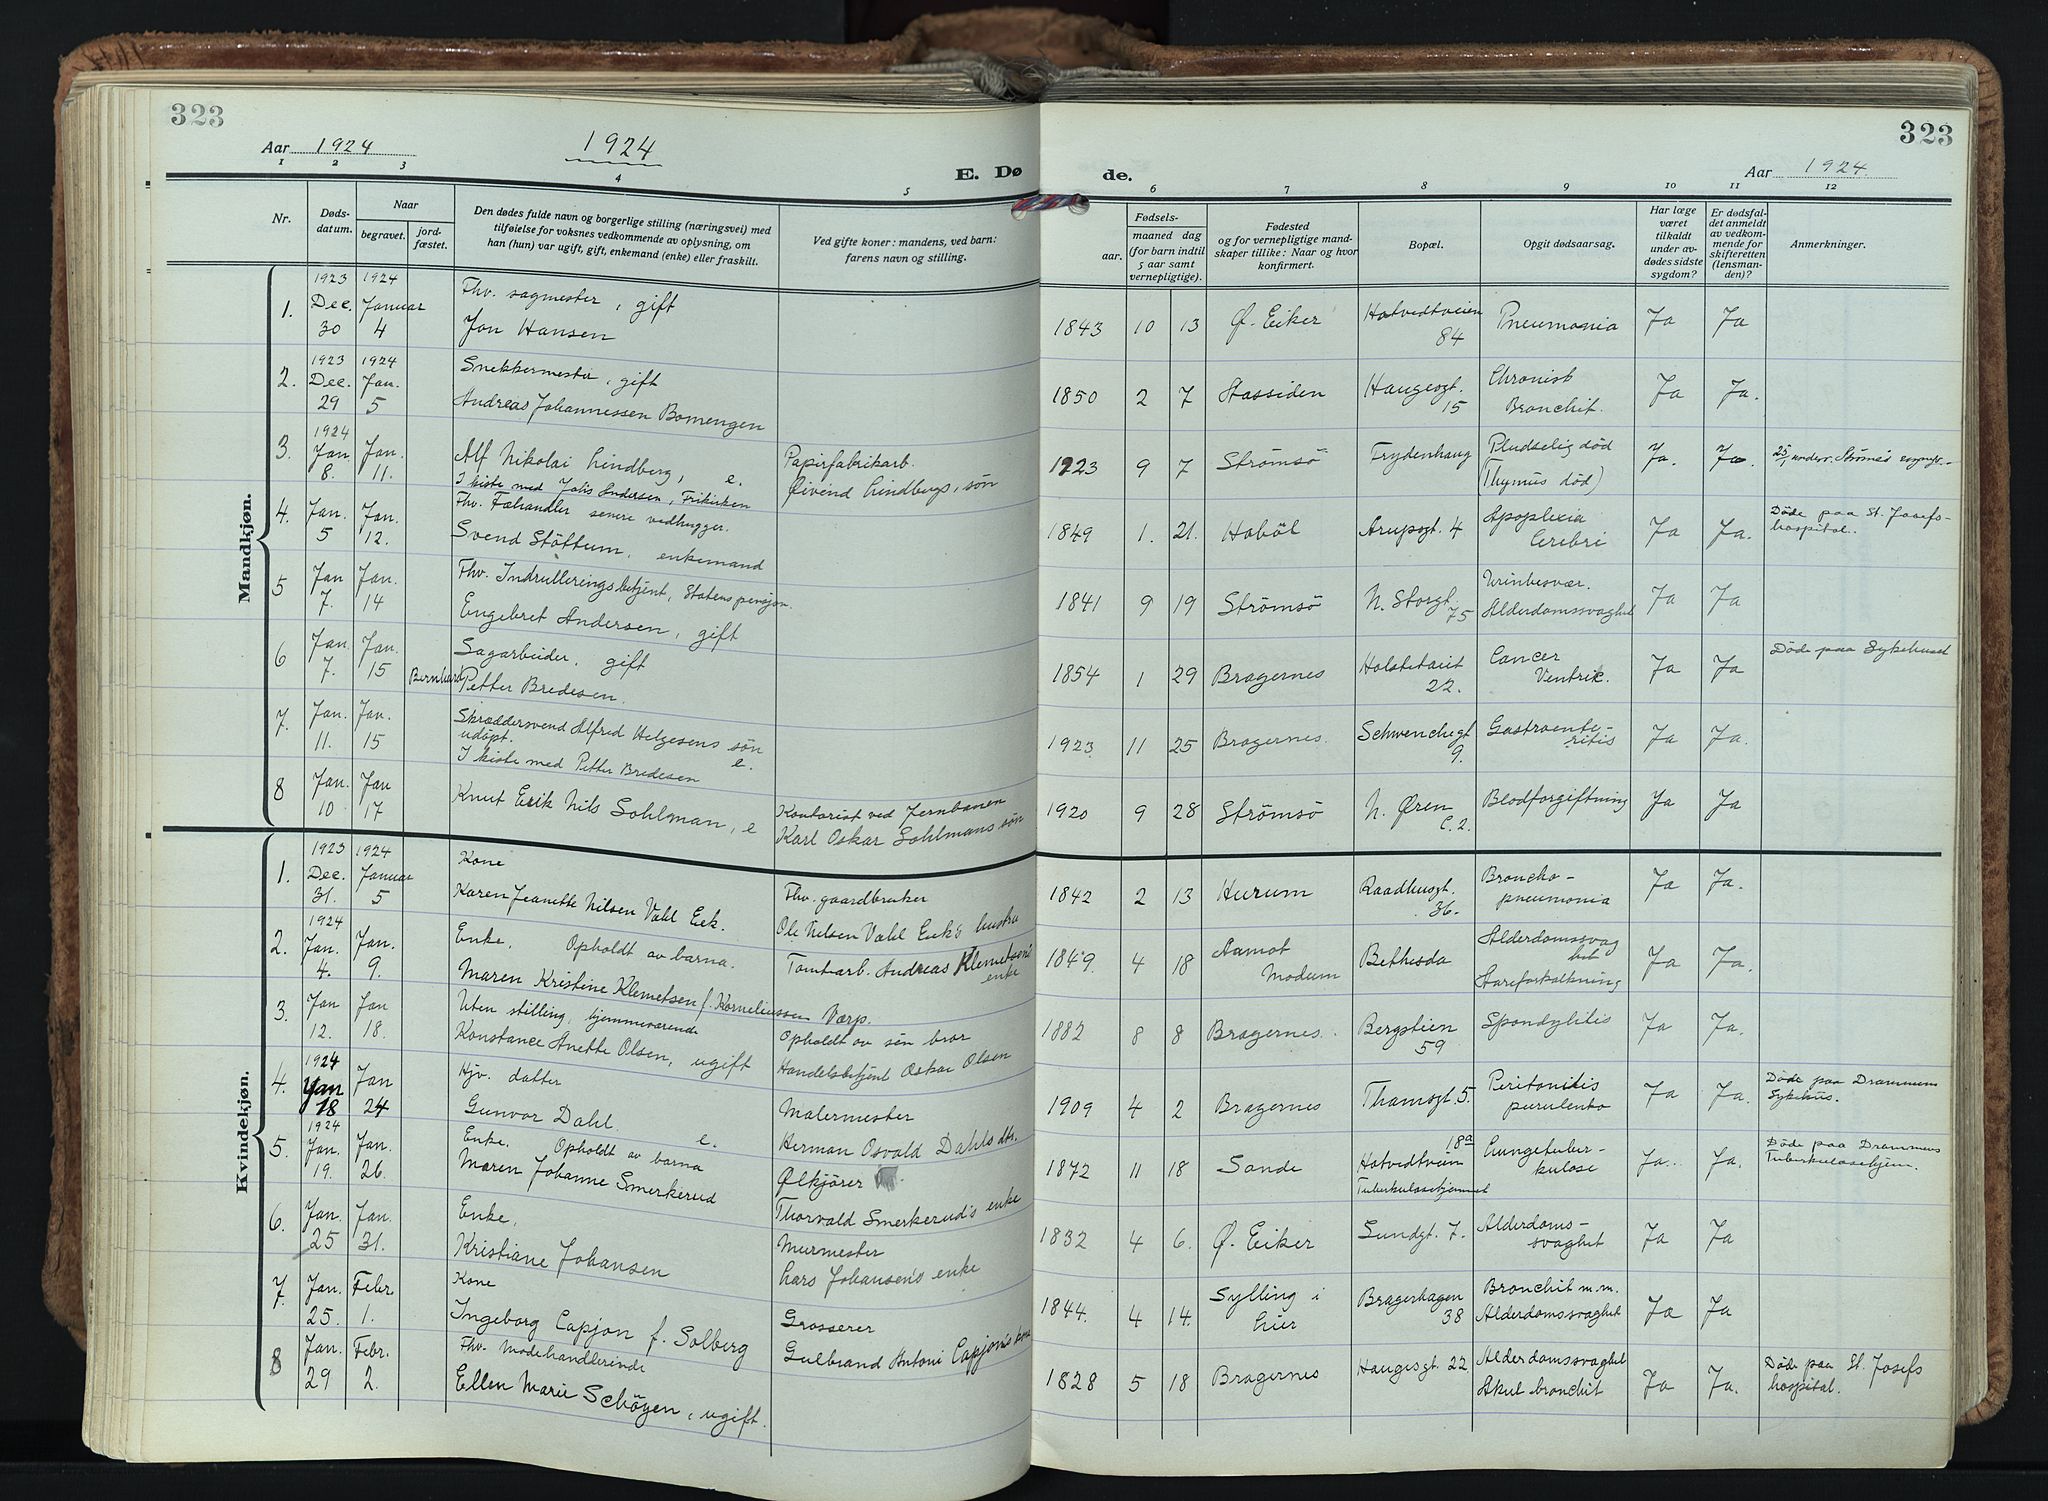 323
323
Aar 1924
1924
E. Dø
de.
Aar 1924.
1 2 3 4 5 6 7 8 9 10 11 12
Nr.
Døds-
datum.
Naar
begravet.
jord-
fæstet.
Den dødes fulde navn og borgerlige stilling (næringsvei) med
tilføielse for voksnes vedkommende av oplysning, om
han (hun) var ugift, gift, enkemand (enke) eller fraskilt.
Ved gifte koner: mandens, ved barn:
farens navn og stilling.
Fødsels-
aar.
maaned dag
(for barn indtil
5 aar samt
vernepligtige).
Fødested
og for vernepligtige mand-
skaper tillike: Naar og hvor
konfirmert.
Bopæl.
Opgit dødsaarsag.
Har læge
været
tilkaldt
under av-
dødes sidste
sygdom?
Er dødsfal-
det anmeldt
av vedkom-
mende for
skifteretten
(lensman-
den)?
Anmerkninger.
Mandkjøn.
1923 1924
1. Dec. Januar Fhv. sagmester, gift
30 4 Jon Hansen
1843 10 13 Ø. Eiker Hotvedtveien 84 Pneumonia Ja Ja
1923 1924
2. Dec. Jan. Snekkermester, gift
29 5 Andreas Johannessen Bomengen
1850 2 7 Stassiden Haugesgt. 15 Chronisk Bronchit. Ja Ja.
1924
3. Jan. Jan. Alf Nikolai Lindberg, e. Papirfabrikarb.
8. 11. I kiste med Andersen, Frikirken Øivind Lindbergs, søn
1923 9 7 Strømsø Frydenhaug Pludselig død (Thymus død) Ja. Ja. Strømsø
4. Jan. Jan. Fhv. Fæhandler senere vedhugger.
5 12. Svend Støttum, enkemand
1849 1. 21. Hobøl Arupsgt. 4 Apoplexia Cerebri Ja Ja. Døde paa St. Josefs-
hospital.
5 Jan Jan. Fhv. Indrulleringsbetjent, Statens pensjon.
7. 14 Engebret Andersen, gift
1841 9 19 Strømsø N. Storgt. 75 Urinbesvær. Alderdomssvaghet Ja Ja
6 Jan. Jan. Sagarbeider, gift
7. 15 Bernhard Petter Bredesen.
1854 1 29 Bragernes Holstetaiet 22. Cancer Ventrik. Ja Ja Døde paa Sykehuset
7. Jan. Jan. Skræddersvend Alfred Helgesens søn
11. 15 udøpt. e.
I kiste med Petter Bredesen
1923 11 25 Bragernes. Schwenckegt 9. Gastroente-
ritis Ja Ja.
8 Jan. Jan Knut Erik Nils Sohlman, e Kontorist ved Jernbanen
10 17 Karl Oskar Sohlmans søn
1920 9 28 Strømsø N. Øren C.2. Blodforgiftning Ja Ja
Kvindekjøn.
1923 1924
1. Dec. Januar Kone Fhv. gaardbruker
31. 5 Karen Jeanette Nilsen Vahl Eek. Ole Nilsen Vahl Eek's hustru
1842 2 13 Hurum Raadhusgt. 36. Broncho-
pneumonia Ja Ja.
1924
2. Jan. Jan. Enke. Opholdt av barna. Tomtarb. Andreas Klemetsens
4. 9. Maren Kristine Klemetsen f. Korneliussen Værp. enke
1849. 4 18 Aamot Modum Bethesda Alderdomssvag
het
Ja Ja.
3. Jan Jan Uten stilling, hjemmeværende Opholdt av sin bror
12. 18. Konstance Anette Olsen, ugift Handelsbetjent Oskar Olsen
1882 8 8 Bragernes. Bergstien 59 Spondylitis Ja Ja.
1924
4. Jan Jan Hjv. datter Malermester
18 24 Gunvor Dahl. e. Herman Osvald Dahls dtr.
1909 4 2 Bragernes Thamsgt. 5. Peritonitis purulenta Ja Ja. Døde paa Drammens
Sykehus.
1924
5. Jan. Jan. Enke. Opholdt av barna Ølkjører
19. 26. Maren Johanne Smerkerud Thorvald Smerkerud's enke
1872 11 18 Sande Hotvedtveien 18a Tuberkulosehjemmet Lungetuber-
kulose Ja. Ja. Døde paa Drammens
Tuberkulosehjem.
6. Jan. Jan. Enke. Murmester
25 31. Kristiane Johansen Lars Johansen's enke
1832 4 6. Ø. Eiker Sundgt. 7. Alderdoms-
svaghet Ja Ja
7. Jan. Febr Kone Grosserer
25. 1. Ingeborg Capjon f. Solberg Gulbrand Antoni Capjon's kone
1844. 4 14. Sylling i Lier Bragerhagen 38 Bronchit m.m. Alderdomssvaghet Ja Ja
8 Jan. Febr. Fhv. Modehandlerinde
29 2. Ellen Marie Schøyen, ugift.
1828 5 18 Bragernes Haugesgt. 22 Alderdomssvaghet Akut bronchit Ja Ja. Døde paa St. Josefs
hospital.